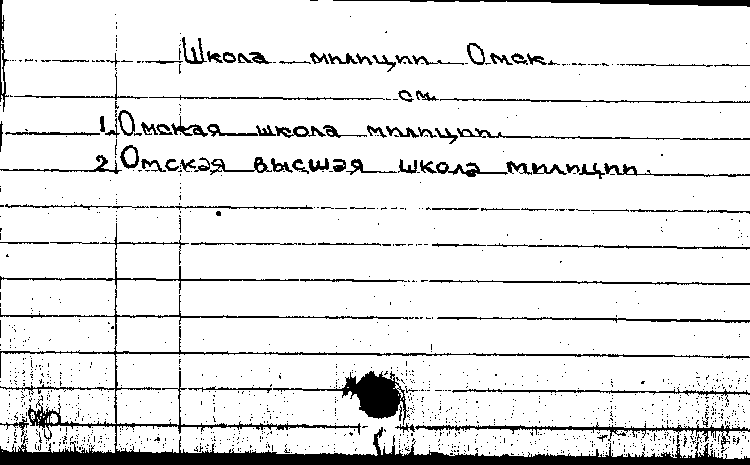 Школа милиции. Омск.
см.
1. Омская школа милиции.
2. Омская высшая школа милиции.